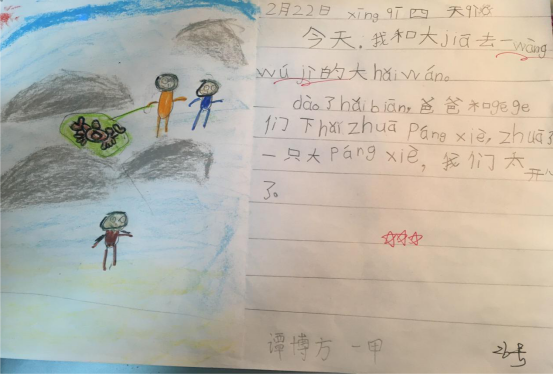 2月22日 xīng qī 四 天气
今天,我和大jiā去一wàng
wú jì的大hǎi wán。
dào了hǎi biān,爸爸和gē ge
们下hǎi zhuā páng xiè,zhuā了
一只大páng xiè,我们太开心
了。
谭博方 一甲
26号